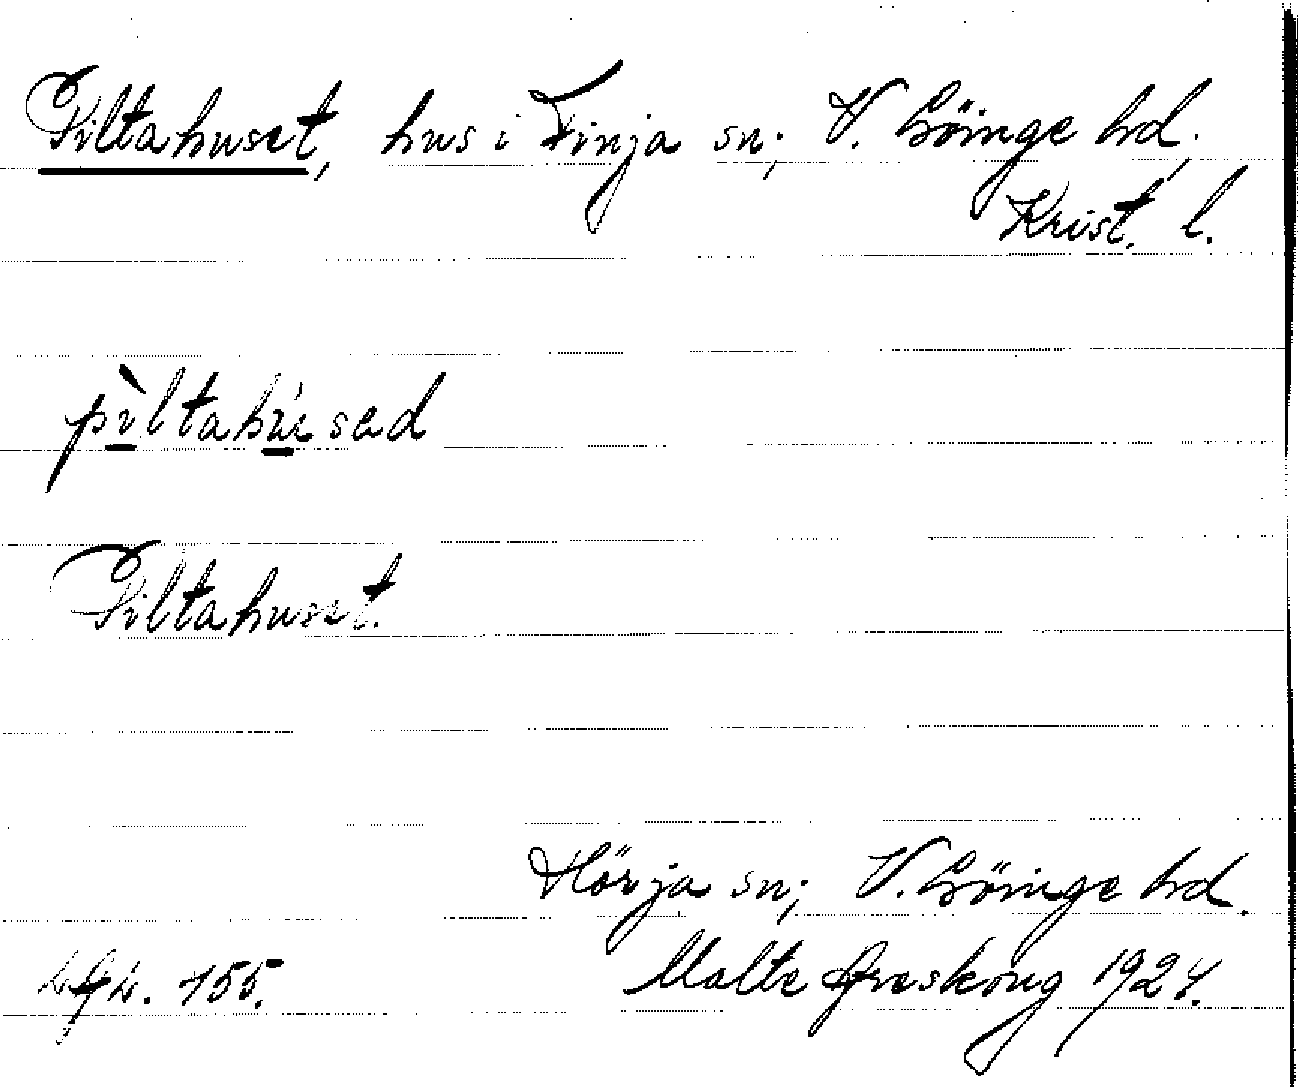 Piltahuset, hus i Finja sn; V. Göinge hd,
Krist. l.
pìltahúsad
Piltahuset.
Hörja sn; V. Göinge hd.
155. Malte Areskoug 1924.